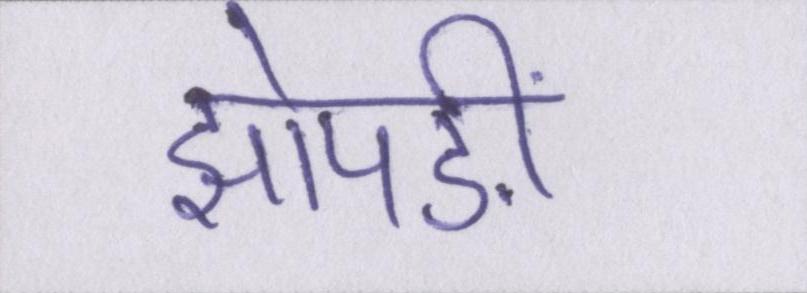 झोपड़ीं